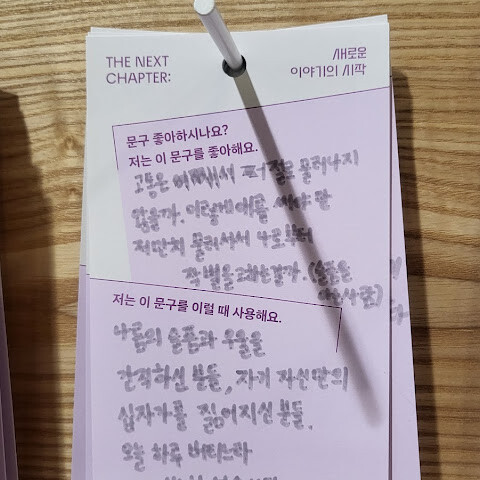 THE NEXT
CHAPTER:
새로운
이야기의 시작
문구 좋아하시나요?
저는 이 문구를 좋아해요.
고통은 저절로 물러나지
않을까. 이렇게 애를 써야 할
저만치 물러서서 나로부터
작별을
저는 이 문구를 이럴 때 사용해요.
나름의 슬픔과 우울을
간직하신 분들, 자기 자신만의
십자가를 짊어지신 분들.
오늘 하루 버티느라